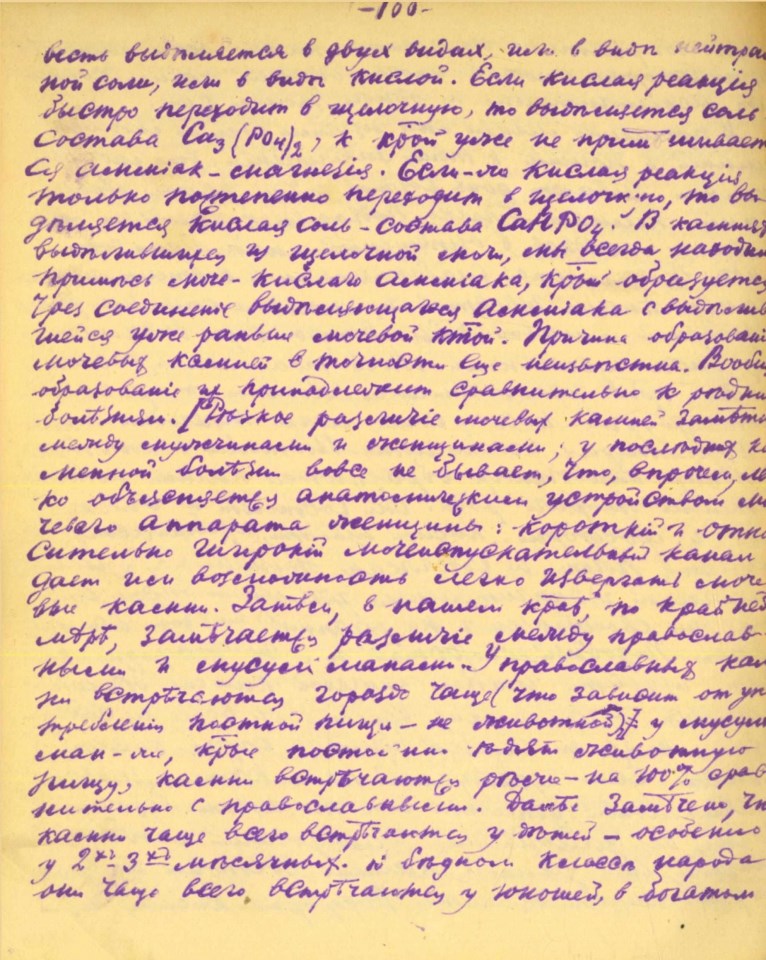 -100-
весть выдѣляется в двух видах, или в видѣ нейтрал
ной соли, или в видѣ кислой. Если кислая реакція
быстро переходит в щелочную, то выдѣляется соль
состава Ca3(PO4)2, к крой уже не примѣшивает
ся амміак-магнезія. Если-же кислая реакція
только постепенно переходит в щелочную, то вы-
дѣляется кислая соль-состава CaHPO4. В камнях
выдѣлившихся из щелочной мочи, мы всегда находим
примѣсь моче-кислаго амміака, крый образуется
чрез соединеніе выдѣляющагося амміака с выдѣлив
шейся уже раньше мочевой ктой. Причина образованія
мочевых камней в точности еще неизвѣстна. Вообще
образованіе их принадлежит сравнительно к рѣдким
болѣзням. [Рѣзкое различіе мочевых камней замѣтно
между мужчинами и женщинами; у послѣдних ка
менной болѣзни вовсе не бывает, что, впрочем, лег
ко объясняется анатомическим устройством мо
чевого аппарата женщины: короткій и отно
сительно широкій мочеиспускательный канал
дает им возможность легко извергать моче
вые камни. Затѣм, в нашем краѣ, по крайней
мѣрѣ, замѣчается различіе между православ-
ными и мусульманами. У православных кам
ни встрѣчаются гораздо чаще (что зависит от уп
требленія постной пищи - не животной)] у мусуль
ман-же, крые постоянно ѣдят животную
пищу, камни встрѣчаются рѣже - на 100% срав
нительно с православными. Далѣе замѣчено, что
камни чаще всего встрѣчаются у дѣтей - особенно
у 2х-3х мѣсячных. В бѣдном классѣ народа
они чаще всего встрѣчаются у юношей, в богатом